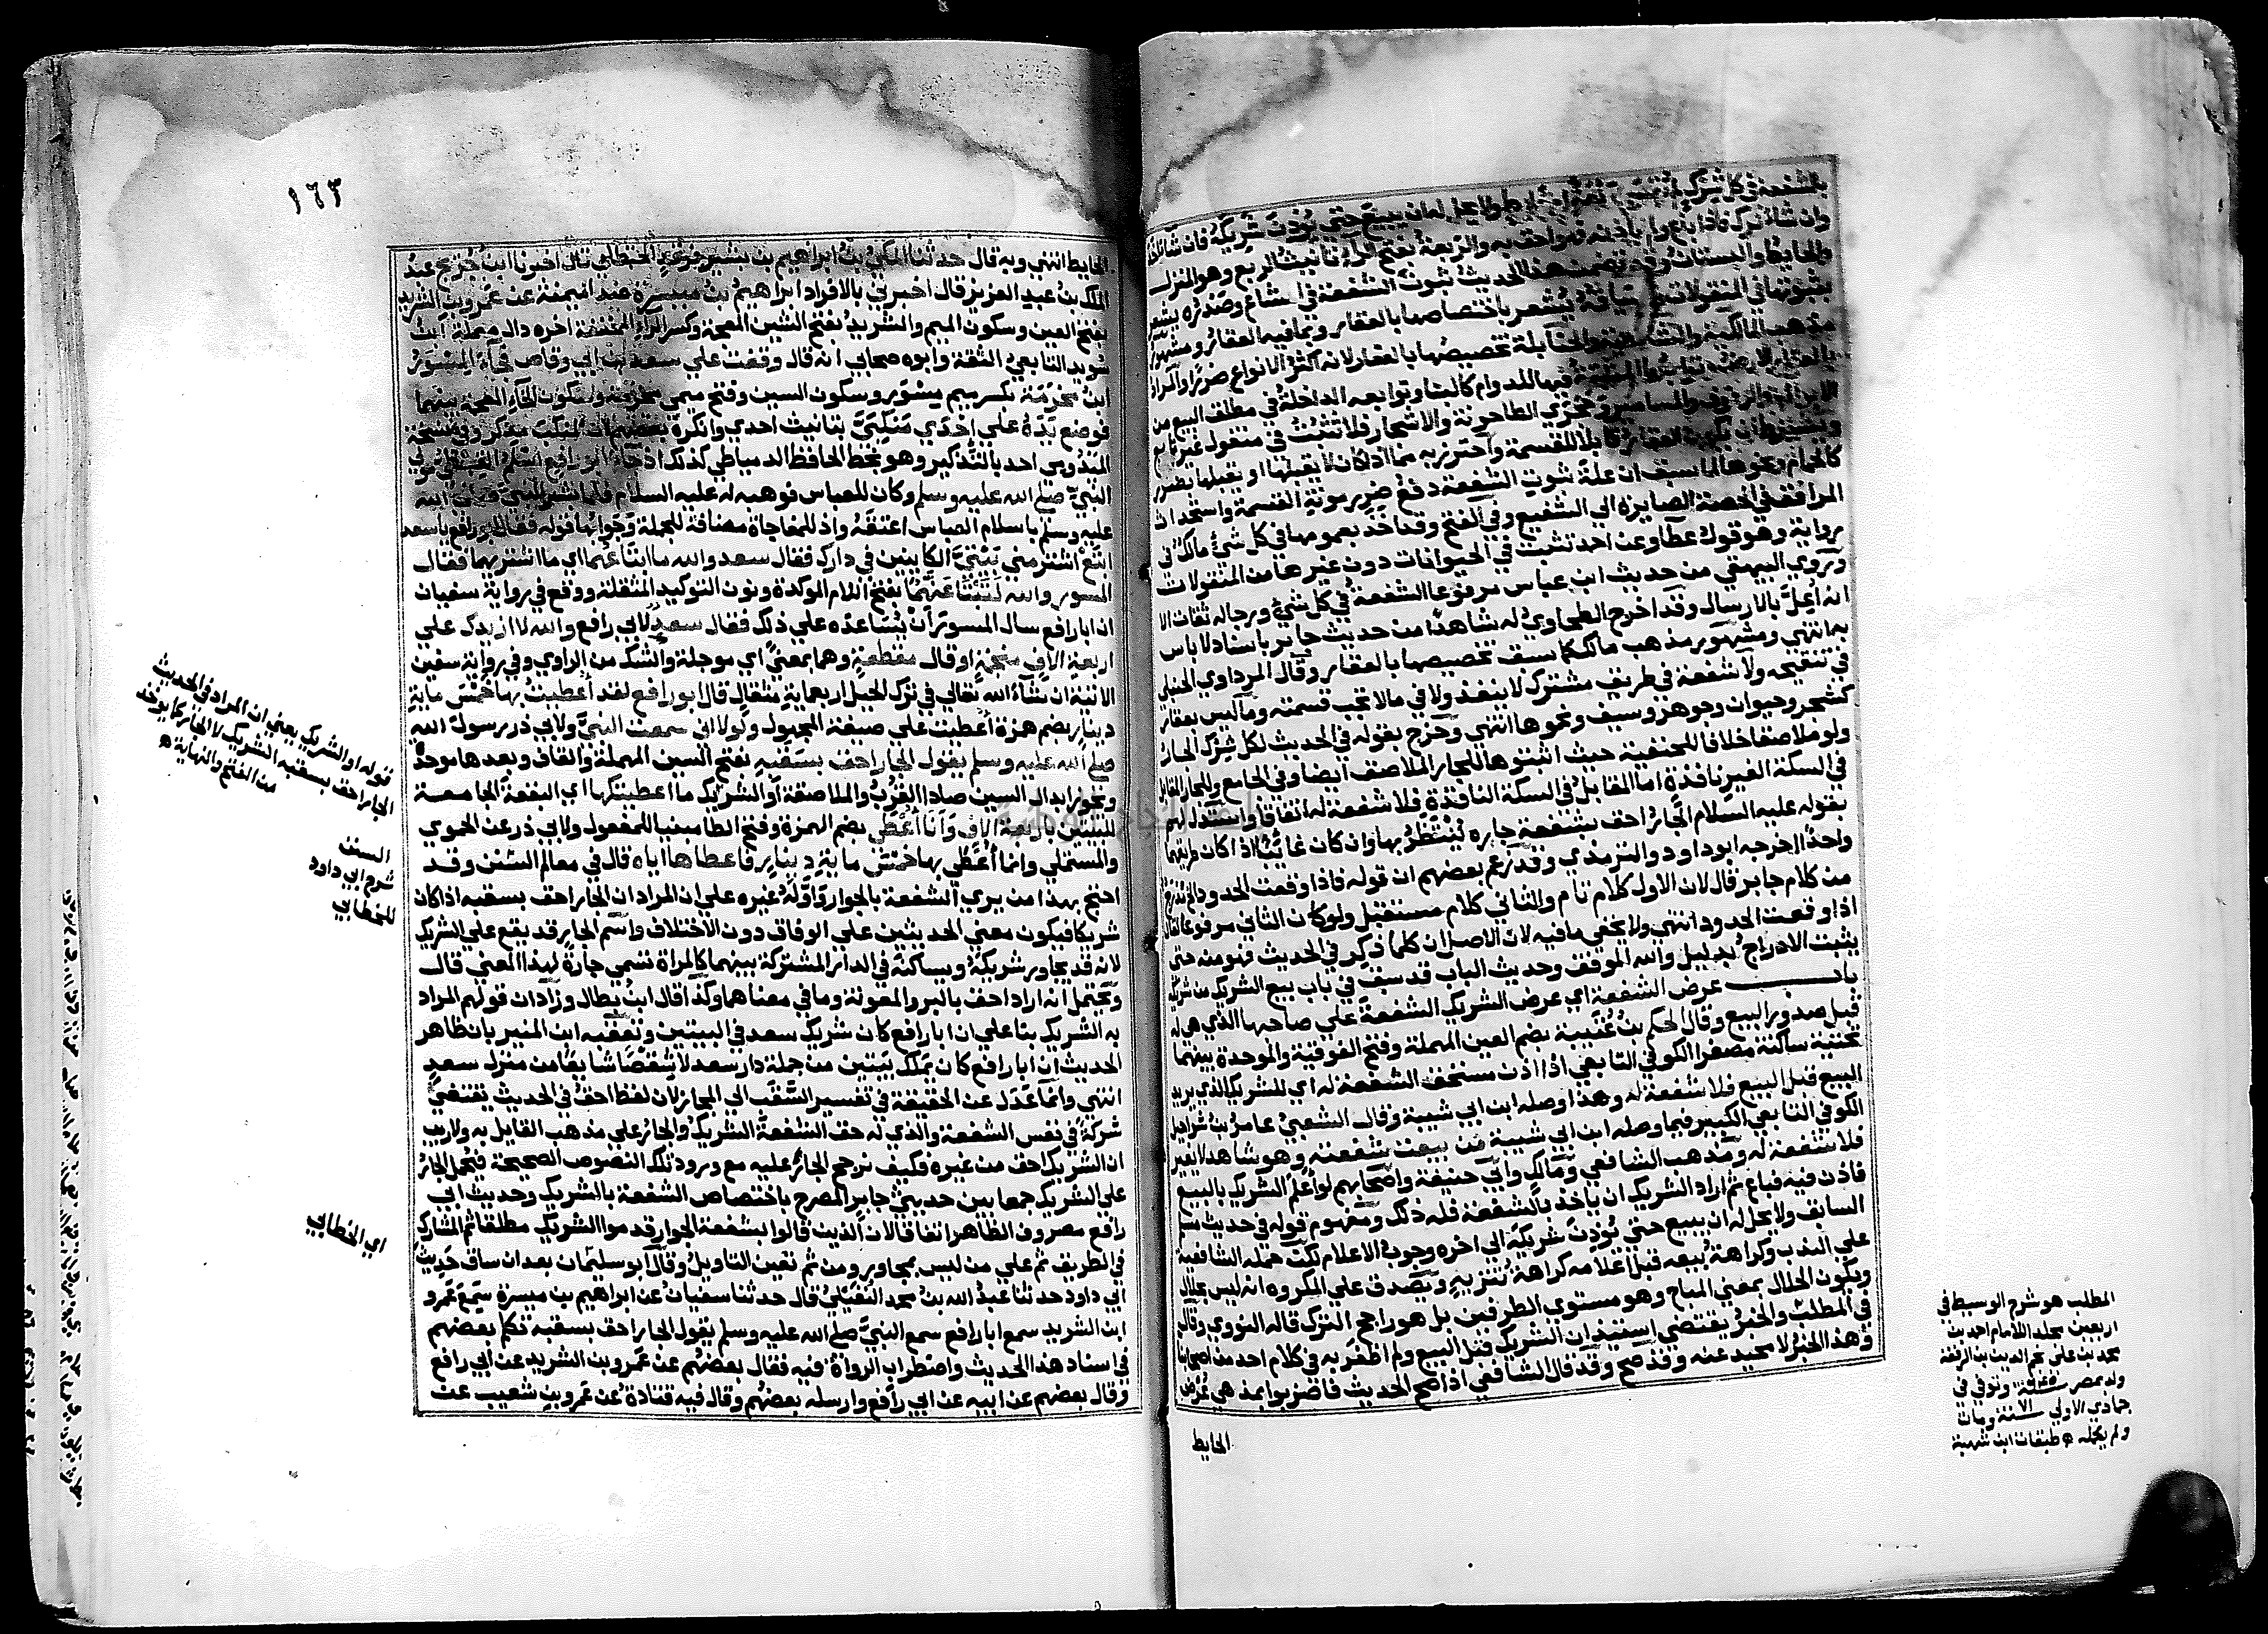 بالشفعة في كل شرك لم يقسم ربعة او حايط ولا يحل له ان يبيع حتي يؤذن شريكه فان شا اخذ
وان شا ترك فاذا باع ولم يأذنه فهو احق به والربعة بفتح الراء تانيث الربع وهو المنزل
والحايط والبستان وقد تضمن هذا الحديث ثبوت الشفعة في المشاع وصدره يشعر
بثبوتها في المنقولات وسياقه يُشعر باختصاصها بالعقار وبما فيه العقار ومشهور
مذهب المالكية والشافعية والحنابلة تخصيصها بالعقار لانه اكثر الانواع ضررا والمراد
بالعقار الارض وتوابعها المثبتة فيها للدوام كالبنا وتوابعه الداخلة في مطلق البيع من
الابواب والرفوف والمسامير وحجري الطاحونة والاشجار فلا تثبت في منقول غير تابع
ويشترط ان يكون العقار قابلا للقسمة واحترز به عما اذا كان لا يقبلها او يقبلها بضرر
كالحمام ونحوها لما سبق ان علة ثبوت الشفعة دفع ضرر مونة القسمة واستحداث
المرافق في الحصة الصايرة الي الشفيع وفي الفتح وقد اخذ بعمومها في كل شئ مالك في
رواية وهو قول عطا وعن احمد تثبت في الحيوانات دون غيرها من المنقولات
وروي البيهقي من حديث ابن عباس مرفوعا الشفعة في كل شئ ورجاله ثقات الا
انه اُعِلّ بالارسال وقد اخرج الطحاوي له شاهدا من حديث جابر باسناد لا باس
به انتهي ومشهور مذهب مالك كما سبق تخصيصها بالعقار وقال المرداوي الحنبلي
في تنقيحه ولا شفعة في طريق مشترك لا ينفذ ولا في ما لا تجب قسمته وما ليس بعقار
كشجر وحيوان وجوهر وسيف ونحوها انتهي وخرج بقوله في الحديث لكل شرك الجار
ولو ملاصقا خلافا للحنفية حيث اثبتوها للجار الملاصق ايضا وفي الجامع والجار المقابل
في السكة الغير نافذة اما المقابل في السكة النافذة فلا شفعة له اتفاقا واستدل لهم
بقوله عليه السلام الجار احق بشفعة جاره يُنتظر بها وان كان غائبا اذا كان طريقهما
واحدا اخرجه ابو داود والترمذي وقد زعم بعضهم ان قوله فاذا وقعت الحدود الخ مدرج
من كلام جابر قال لان الاول كلام تام والثاني كلام مستقبل ولو كان الثاني مرفوعا لقال
اذا وقعت الحدود انتهي ولا يخفي ما فيه لان الاصل ان كلما ذكر في الحديث فهو منه حتي
يثبت الادراج بدليل والله الموفق وحديث الباب قد سبق في باب بيع الشريك من شريكه
باب عرض الشفعة اي عرض الشريك الشفعة علي صاحبها الذي هي له
قبل صدور البيع وقال الحكم بن عُتَيبة بضم العين المهملة وفتح الفوقية والموحدة بينهما
تحتية ساكنة مصغرا الكوفي التابعي اذا اذن مستحق الشفعة له اي للشريك الذي يريد
البيع قبل البيع فلا شفعة له وهذا وصله ابن ابي شيبة وقال الشعبي عامر بن شراحيل
الكوفي التابعي الكبير فيما وصله ابن ابي شيبة من بيعت شفعته وهو شاهد لا يغير
فلا شفعة له ومذهب الشافعي ومالك وابي حنيفة واصحابهم لو اعلم الشريك بالبيع
فاذن فيه فباع ثم اراد الشريك ان ياخذ بالشفعة فله ذلك ومفهوم قوله في حديث مسلم
السابق ولا يحل له ان يبيع حتي يؤذن شريكه الي اخره وجوب الاعلام لكن حمله الشافعية
علي الندب وكراهة بيعه قبل اعلامه كراهة تنزيه ويصدق علي المكروه انه ليس بحلال
ويكون الحلال بمعني المباح وهو مستوي الطرفين بل هو راجح الترك قاله النووي وقال
في المطلب والخبر يقتضي استئذان الشريك قبل البيع ولم اظفر به في كلام احد من اصحابنا
وهذا الخبر لا محيد عنه وقد صح وقد قال الشافعي اذا صح الحديث فاضربوا بمذهبي عُرض
الحايط
المطلب هو شرح الوسيط في
اربعين مجلد اللامام احمد بن
محمد بن علي نجم الدين بن الرفعة
ولد بمصر سنة ٦٤٥ وتوفي في
جمادي الاولي سنة ومات
ولم يكمله ه طبقات ابن شهبة
١٦٣
الحايط انتهي وبه قال حدثنا المكي بن ابراهيم بن بشير بن فرقد الحنظلي قال اخبرنا ابن جريج عبد
الملك بن عبد العزيز قال اخبرني بالافراد ابراهيم بن ميسرة ضد الميمنة عن عمرو بن الشريد
بفتح العين وسكون الميم والشريد بفتح الشين المعجمة وكسر الراء المخففة اخره دال مهملة ابن
سويد التابعي الثقة وابوه صحابي انه قال وقفت علي سعد بن ابي وقاص فجاء المسور
ابن مخرمة بكسر ميم مسور وسكون السين وفتح ميمي مخرمة وسكون الخاء المعجمة بينهما
فوضع يده علي احدي منكبيّ بتانيث احدي وانكره بعضهم لان المنكب مذكر وفي نسخة
الميدومي احد بالتذكير وهو بخط الحافظ الدمياطي كذلك اذ جاء ابو رافع اسلم القبطي مولي
النبي صلي الله عليه وسلم وكان للعباس فوهبه له عليه السلام فلما بشر النبي صلي الله
عليه وسلم باسلام العباس اعتقه واذ للمفاجاة مضافة للجملة وجوابها قوله فقال ابو رافع يا سعد
ابتع اشتر مني بيتيّ الكاينين في دارك فقال سعد والله ما ابتاعهما اي ما اشتريهما فقال
المسور والله لتبتاعنهما بفتح اللام الموكدة ونون التوكيد المثقلة ووقع في رواية سفيان
ان ابا رافع سال المسور ان يساعده علي ذلك فقال سعد لابي رافع والله لا ازيدك علي
اربعة الاف منجمة او قال مقطعة وهما بمعني اي موجلة والشك من الراوي وفي رواية سفين
الاتية ان شاء الله تعالي في ترك الحيل اربعماية مثقال قال ابو رافع لقد اعطيت بها خمس ماية
دينار بضم همزة اعطيت علي صيغة المجهول ولولا اني سمعت النبي ولابي ذر رسول الله
صلي الله عليه وسلم يقول الجار احق بسقبه بفتح السين المهملة والقاف وبعدها موحدة
ويجوز ابدال السين صادا القرب والملاصقة او الشريك ما اعطيتكها اي البقعة الجامعة
للبيتين باربعة الاف وانا اُعطي بضم الهمزة وفتح الطا مبنيا للمفعول ولابي ذر عن الحموي
والمستملي وانما اُعطي بها خمس ماية دينار فاعطاها اياه قال في معالم السنن وقد
احتج بهذا من يري الشفعة بالجوار واوّله غيره علي ان المراد ان الجار احق بسقبه اذا كان
شريكا فيكون معني الحديثين علي الوفاق دون الاختلاف واسم الجار قد يقع علي الشريك
لانه قد يجاور شريكه ويساكنه في الدار المشتركة بينهما كالمراة تسمي جارة لهذا المعني قال
ويحتمل انه اراد احق بالبر والمعونة وما في معناهما وكذا قال ابن بطال وزاد ان قولهم المراد
به الشريك بنا علي ان ابا رافع كان شريك سعد في البيتين وتعقبه ابن المنير بان ظاهر
الحديث ان ابا رافع كان يملك بيتين من جملة دار سعد لا شقصا شايعا من منزل سعد
انتهي وانما عدل عن الحقيقة في تفسير السقب الي المجاز لان لفظ احق في الحديث يقتضي
شركة في نفس الشفعة والذي له حق الشفعة الشريك والجار علي مذهب القايل به ولا ريب
ان الشريك احق من غيره فكيف نرجح الجار عليه مع ورود تلك النصوص الصحيحة فيحمل الجار
علي الشريك جمعا بين حديثي جابر المصرح باختصاص الشفعة بالشريك وحديث ابي
رافع مصروف الظاهر اتفاقا لان الذين قالوا بشفعة الجوار قدموا الشريك مطلقا ثم المشارك
في الطريق ثم علي من ليس بمجاور ومن ثم تعين التاويل وقال ابو سليمان بعد ان ساق حديث
ابي داود حدثنا عبد الله بن محمد النفيلي قال حدثنا سفيان عن ابراهيم بن ميسرة سمع عمرو
ابن الشريد سمع ابا رافع سمع النبي صلي الله عليه وسلم يقول الجار احق بسقبه تكلم بعضهم
في اسناد هذا الحديث واضطراب الرواة فيه فقال بعضهم عن عمرو بن الشريد عن ابي رافع
وقال بعضهم عن ابيه عن ابي رافع وارسله بعضهم وقال فيه قتادة عن عمرو بن شعيب عن
قوله او الشريك يعني ان المراد في الحديث
الجار احق بسقبه الشريك لا الجار كما يوخذ
من الفتح والنهاية ه
السنن
شرح ابي داود
للخطابي
اي الخطابي